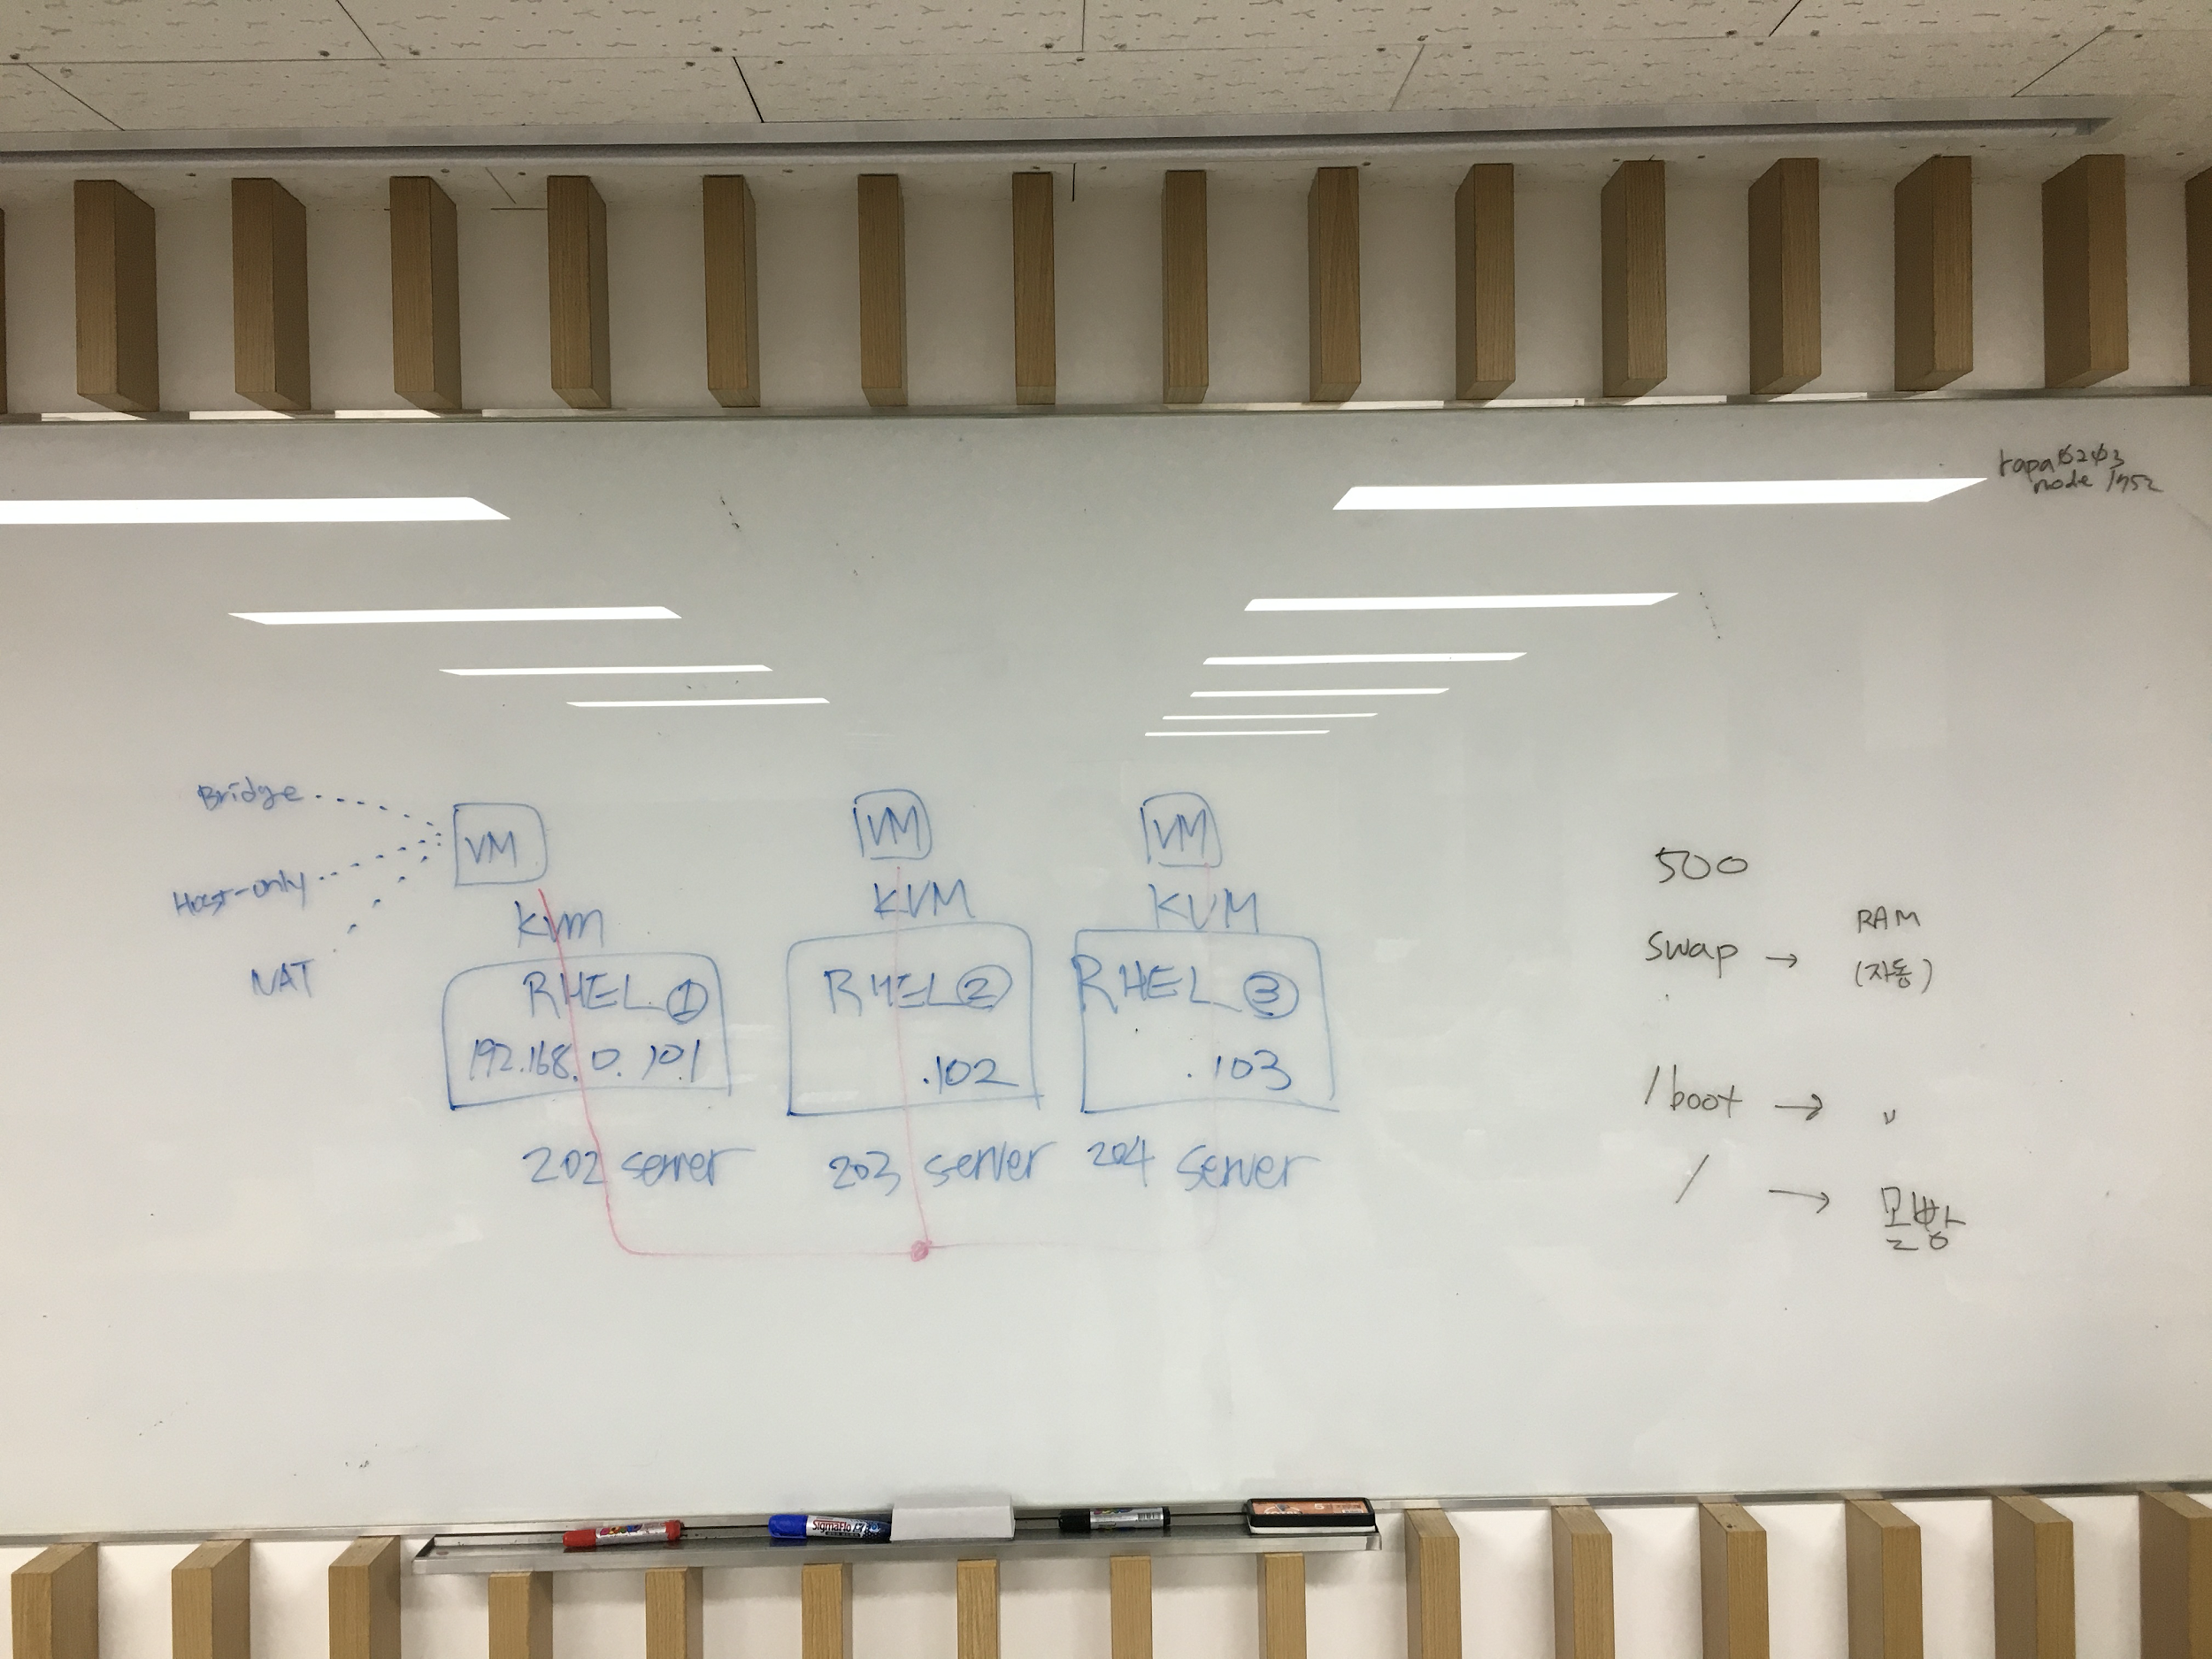 rapa0203
node 1752
Bridge
Host-only
NAT
VM
KVM
RHEL ①
192.168.0.101
202 server
VM
KVM
RHEL ②
.102
203 server
VM
KVM
RHEL ③
.103
204 server
500
swap → RAM
(자동)
/boot → 〃
/ → 몰빵
SigmaFlo